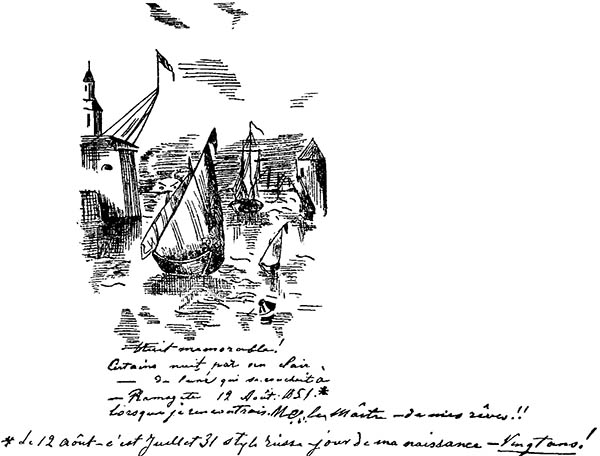 Nuit memorable!
Certaine nuit par un clair
— de lune qui se couchait à
— Ramsgate 12 Août 1851 *
lorsque je rencontrais M∴ le Maître — de mes rêves!!
* Le 12 Août — c'est Juillet 31 style russe — jour de ma naissance — Vingt ans!